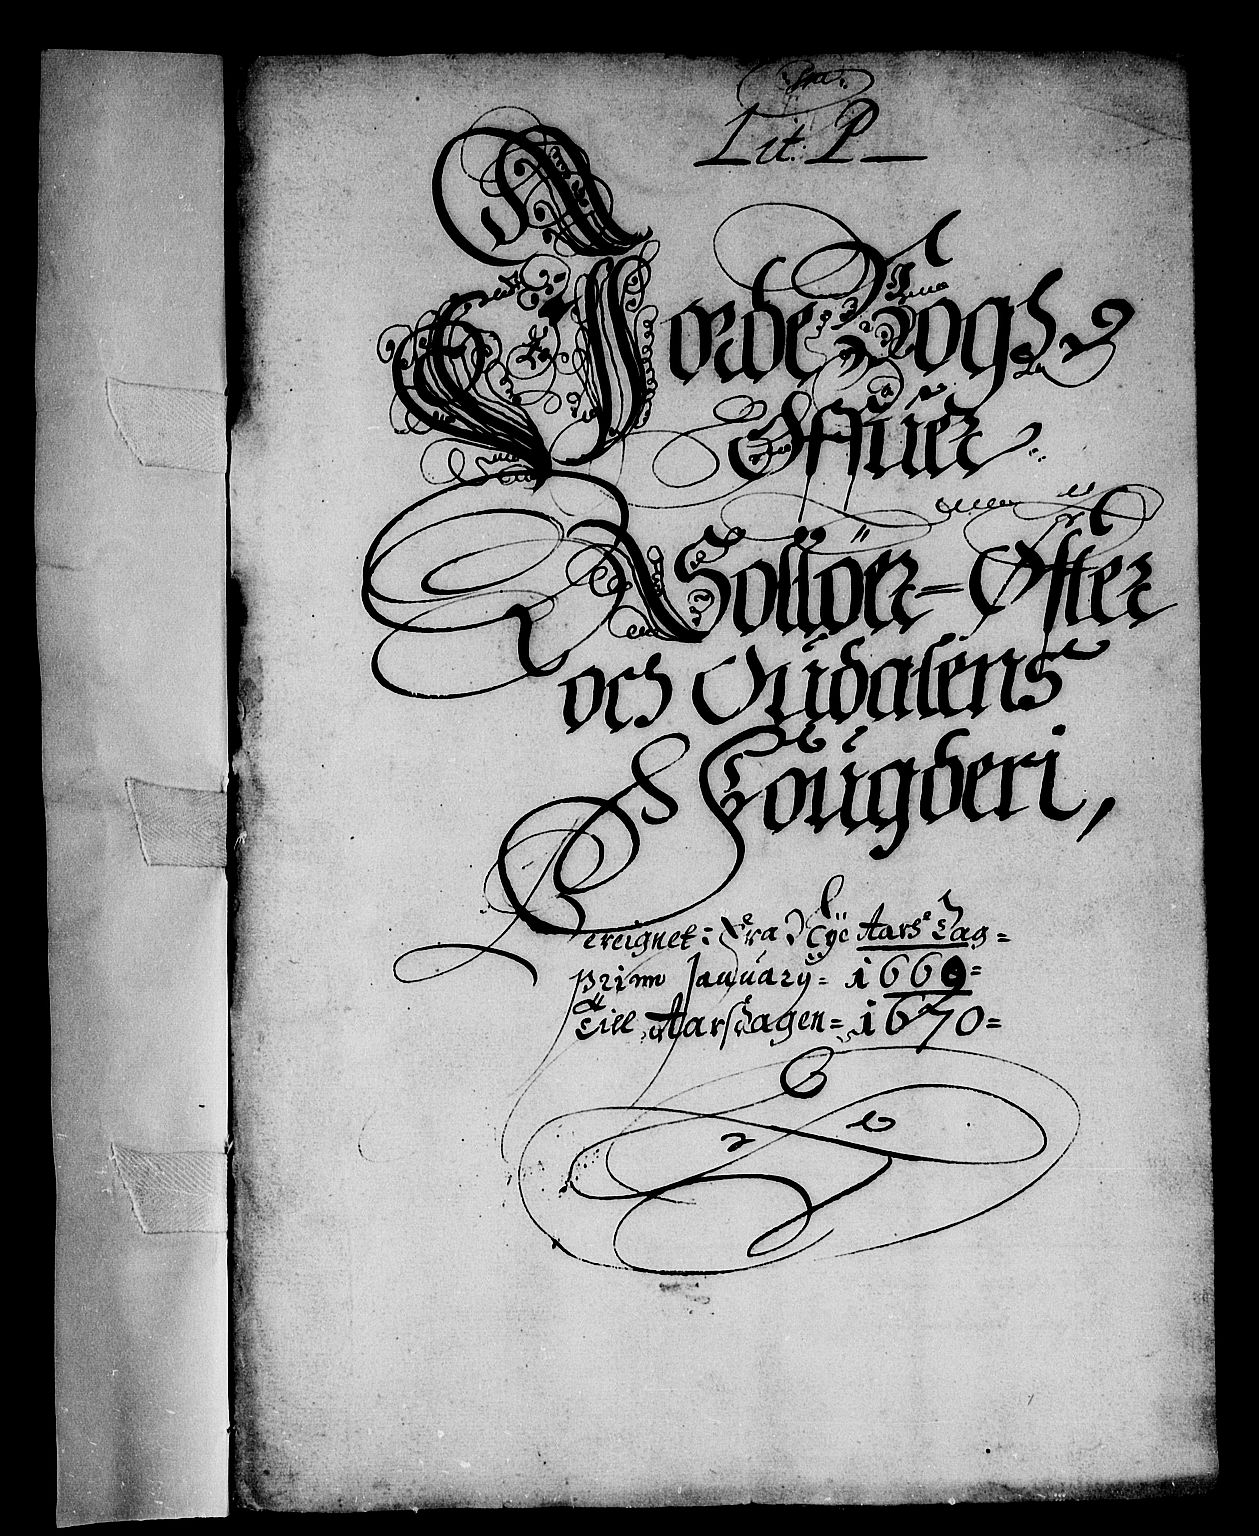 Lit. P
Jorde Bogh
Offuer
Sollöer = Øster
och Oudalens
Fougderi,
Bereignet: Fra Nye Aars Dag =
primo January = 1669 =
Till Aarsdagen = 1670 =